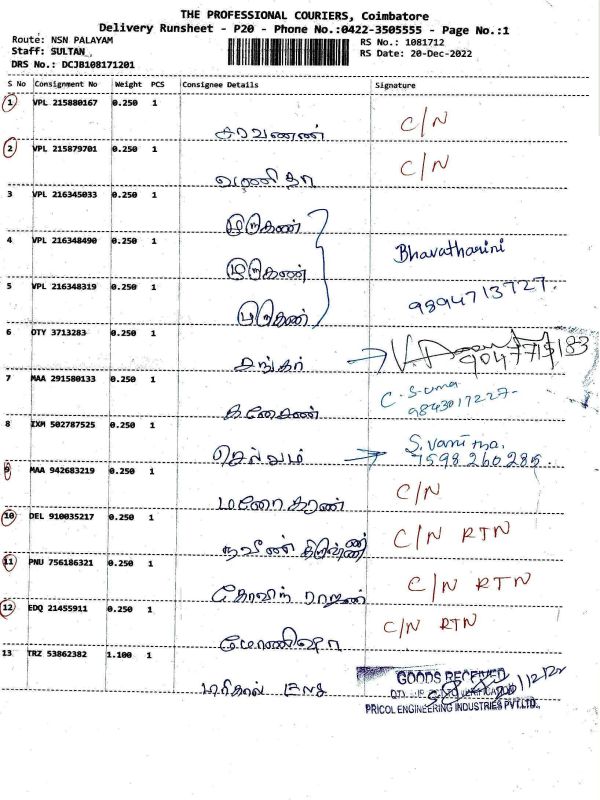 THE PROFESSIONAL COURIERS, Coimbatore
Delivery Runsheet - P20 - Phone No.:0422-3505555 - Page No.:1
Route: NSN PALAYAM
RS No.: 1081712
Staff: SULTAN
RS Date: 20-Dec-2022
DRS No.: DCJB108171201
S No Consignment No Weight PCS Consignee Details Signature
1 VPL 215880167 0.250 1
சரவணன் C/N
2 VPL 215879701 0.250 1
வனிதா C/N
3 VPL 216345033 0.250 1
முருகன்
4 VPL 216348490 0.250 1
முருகன் Bhavatharini
5 VPL 216348319 0.250 1
9894713727.
முருகன்
6 OTY 3713283 0.250 1
சங்கர் 9047715183
7 MAA 291580133 0.250 1
கணேசன் C. Suma
9843017227-
8 IXM 502787525 0.250 1
செல்வம் S. Vanitha.
7598260285.
9 MAA 942683219 0.250 1
மனோகரன் C/N
10 DEL 910035217 0.250 1
நவீன் C/N RTN
11 PNU 756186321 0.250 1
ராஜன் C/N RTN
12 EDQ 21455911 0.250 1
மோனிஷா C/N RTN
13 TRZ 53862382 1.100 1
பரிகால் ENG
GOODS RECEIVED
20/12/22
PRICOL ENGINEERING INDUSTRIES PVT.LTD.,